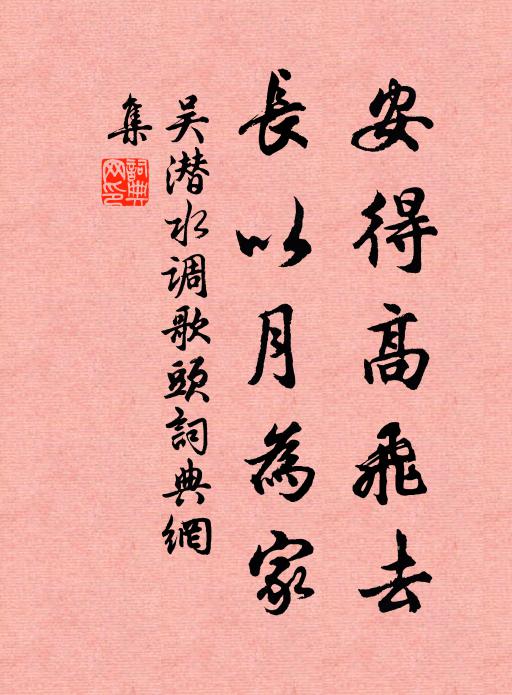 安得高飛去
長以月為家
吴潜水调歌頭詞典網
集
詞典网印